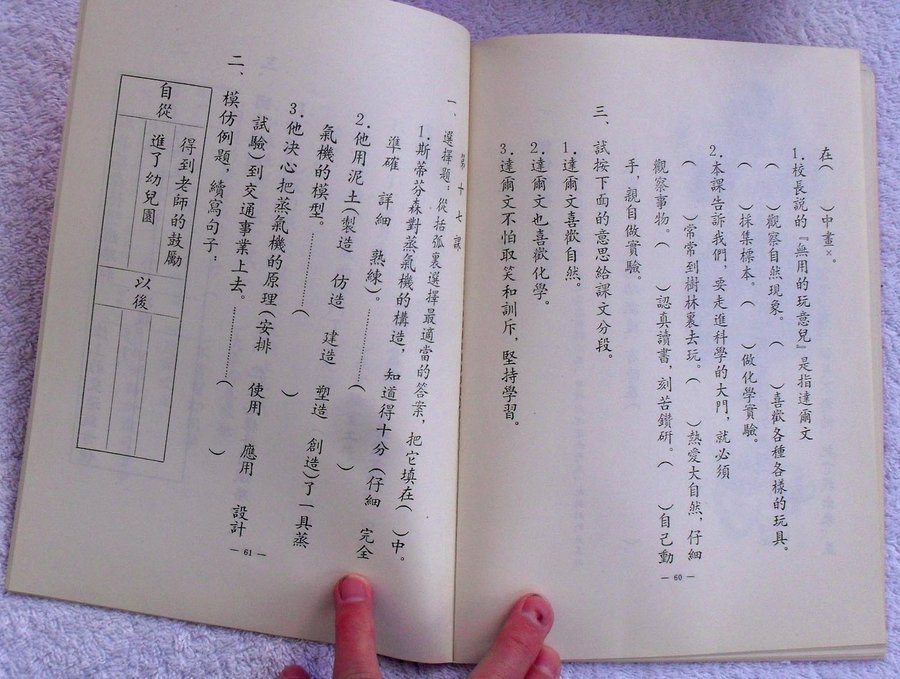 在(　　)中畫×。
1.校長説的『無用的玩意兒』是指達爾文
(　　)觀察自然現象。(　　)喜歡各種各樣的玩具。
(　　)採集標本。(　　)做化學實驗。
2.本課告訴我們，要走進科學的大門，就必須
(　　)常常到樹林裏去玩。(　　)熱愛大自然，仔細
觀察事物。(　　)認真讀書，刻苦鑽研。(　　)自己動
手，親自做實驗。
三、試按下面的意思給課文分段。
1.達爾文喜歡自然。
2.達爾文也喜歡化學。
3.達爾文不怕取笑和訓斥，堅持學習。
— 60 —
第十七課
一、選擇題：從括弧裏選擇最適當的答案，把它填在(　)中。
1.斯蒂芬森對蒸氣機的構造，知道得十分(仔細　完全
準確　詳細　熟練)。…………(　　)
2.他用泥土(製造　仿造　建造　塑造　創造)了一具蒸
氣機的模型。…………(　　)
3.他決心把蒸氣機的原理(安排　使用　應用　設計
試驗)到交通事業上去。…………(　　)
二、模仿例題，續寫句子：
自從
得到老師的鼓勵
進了幼兒園
以後
— 61 —